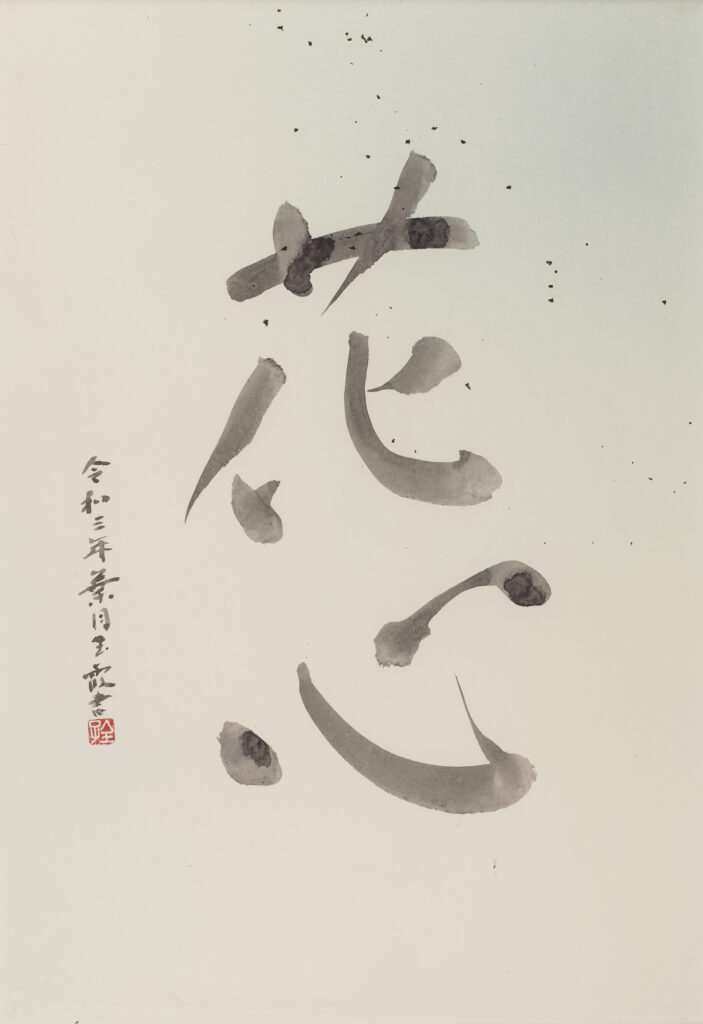 花心
令和三年葉月玉霞書